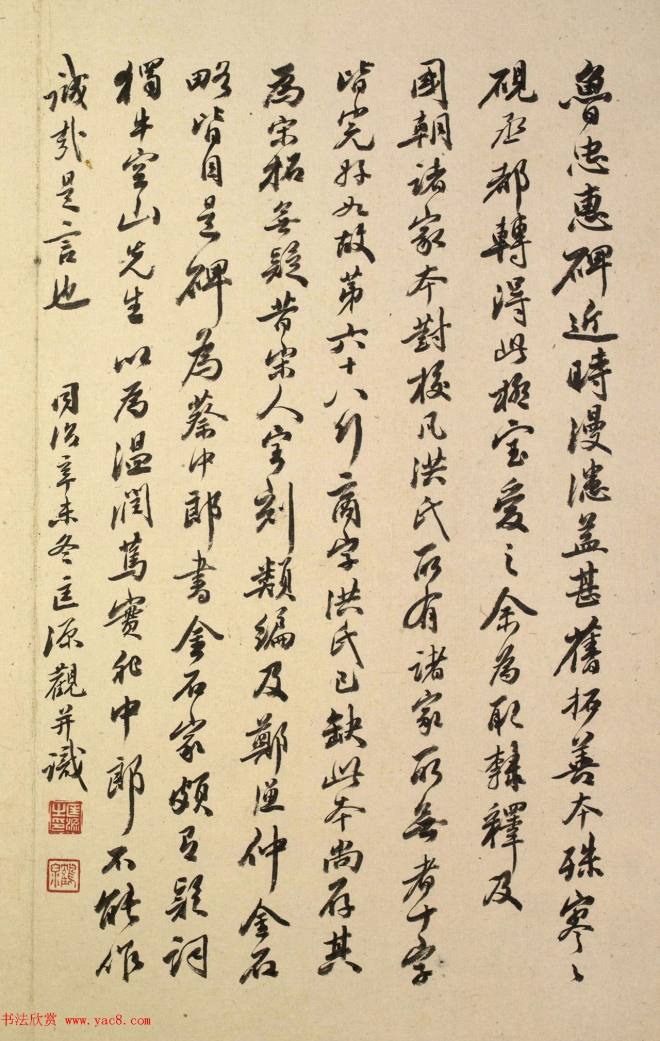 魯忠惠碑近時漫漶益甚舊拓善本殊寥〻
硯丞都轉得此極宝愛之余為取隸釋及
國朝諸家本對校凡洪氏所有諸家所無者十字
皆完好如故第六十八行商字洪氏已缺此本尚存其
為宋拓無疑昔宋人寳刻類編及鄭漁仲金石
略皆目是碑為蔡中郎書金石家頗有疑詞
獨牛空山先生以為溫潤篤實非中郎不能作
誠哉是言也 同治辛未冬匡源觀并識
书法欣赏 www.yac8.com